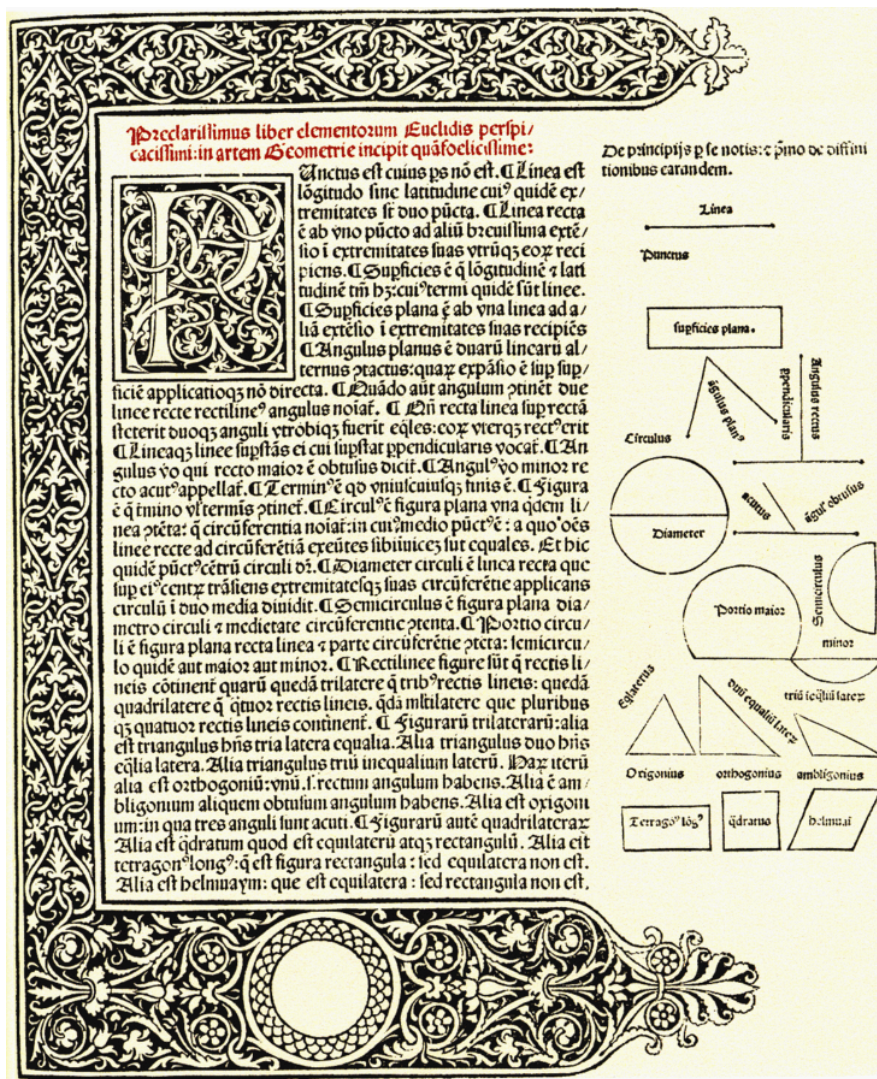 Preclarissimus liber elementorum Euclidis perspi/
cacissimi: in artem Geometrie incipit quāfoelicissime:
PUnctus est cuius ps nō est. ¶ Linea est
lōgitudo sine latitudine cuiꝰ quidē ex/
tremitates st duo pūcta. ¶ Linea recta
ē ab vno pūcto ad aliū breuissima extē/
sio ī extremitates suas vtrūqꝫ eoꝝ reci
piens. ¶ Supficies ē q̄ lōgitudinē ⁊ lati
tudinē tm̄ hꝫ: cuiꝰ termi quidē sūt linee.
¶ Supficies plana ē ab vna linea ad a/
liā extēsio ī extremitates suas recipiēs
¶ Angulus planus ē duarū linearū al/
ternus ꝯtactus: quaꝝ expāsio ē sup sup/
ficiē applicatioqꝫ nō directa. ¶ Quādo aūt angulum ꝯtinēt due
linee recte rectilineꝰ angulus noiat̄. ¶ Qn̄ recta linea sup rectā
steterit duoqꝫ anguli vtrobiqꝫ fuerit eq̄les: eoꝝ vterqꝫ rectꝰ erit
¶ Lineaqꝫ linee supstās ei cui supstat ppendicularis vocat̄. ¶ An
gulus v̄o qui recto maior ē obtusus dicit̄. ¶ Angulꝰ v̄o minor re
cto acutꝰ appellat̄. ¶ Terminꝰ ē qd vniuscuiusqꝫ finis ē. ¶ Figura
ē q̄ tmino vl̓ termis ꝯtinet̄. ¶ Circulꝰ ē figura plana vna qdem li/
nea ꝯtēta: q̄ circūferentia noiat̄: in cuiꝰ medio pūctꝰ ē: a quo oēs
linee recte ad circūferētiā exeūtes sibiiuiceꝫ sut equales. Et hic
quidē pūctꝰ cētrū circuli dr̄. ¶ Diameter circuli ē linea recta que
sup eiꝰ centꝝ trāsiens extremitatesqꝫ suas circūferētie applicans
circulū ī duo media diuidit. ¶ Semicirculus ē figura plana dia/
metro circuli ⁊ medietate circūferentie ꝯtenta. ¶ Portio circu/
li ē figura plana recta linea ⁊ parte circūferētie ꝯtēta: semicircu/
lo quidē aut maior aut minor. ¶ Rectilinee figure sūt q̄ rectis li/
neis cōtinent̄ quarū quedā trilatere q̄ tribꝰ rectis lineis: quedā
quadrilatere q̄ qtuor rectis lineis. qdā mltilatere que pluribus
qꝫ quatuor rectis lineis continent̄. ¶ Figurarū trilaterarū: alia
est triangulus hn̄s tria latera equalia. Alia triangulus duo hn̄s
eq̄lia latera. Alia triangulus triū inequalium laterū. Haꝝ iterū
alia est orthogoniū: vnū .s. rectum angulum habens. Alia ē am/
bligonium aliquem obtusum angulum habens. Alia est oxigoni
um: in qua tres anguli sunt acuti. ¶ Figurarū autē quadrilateraꝝ
Alia est qdratum quod est equilaterū atqꝫ rectangulū. Alia est
tetragonꝰ longꝰ: q̄ est figura rectangula: sed equilatera non est.
Alia est helmuaym: que est equilatera: sed rectangula non est.
De principijs p se notis: ⁊ pmo de diffini
tionibus earandem.
Linea
Punctus
supficies plana.
āgulus planꝰ
ppendicularis
Angulus rectus
Circulus
Diameter
acutus
āgulꝰ obtusus
Portio maior
Semicirculus
minor
Eqlaterus
duū equaliū lateꝝ
triū ieq̄liū lateꝝ
Origonius
orthogonius
ambligonius
Tetragoꝰ lōgꝰ
qdratus
helmuai